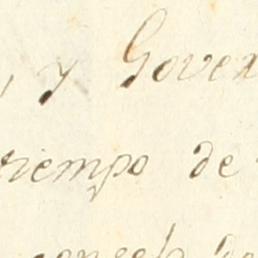 , y Gover
tiempo de